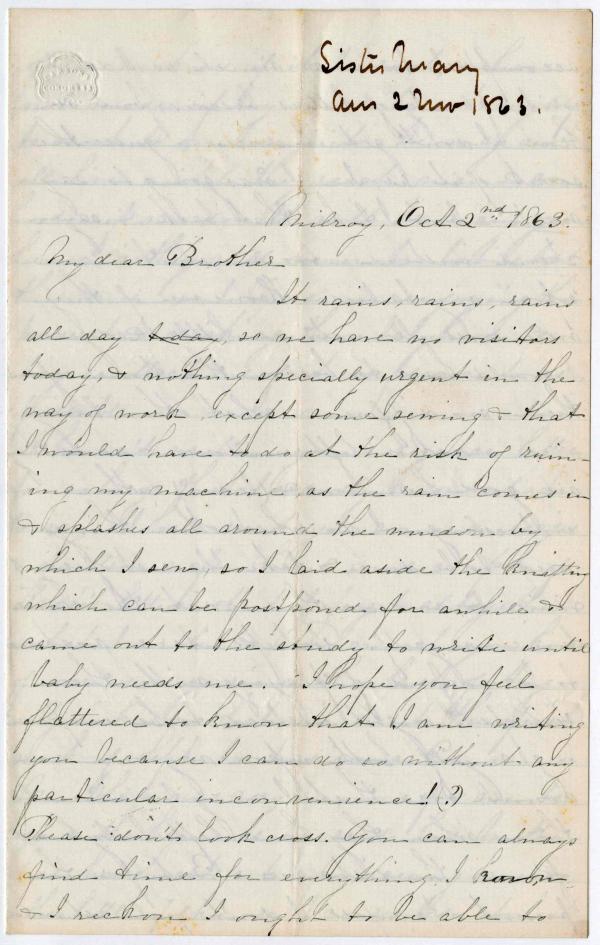 Sister Mary
Ans 2 Nov 1863.
CONGRESS
Milroy, Oct 2nd 1863.
My dear Brother
It rains, rains, rains
all day today, so we have no visitors
today, & nothing specially urgent in the
way of work except some sewing & that
I would have to do at the risk of ruin-
ing my machine as the rain comes in
& splashes all around the window by
which I sew, so I laid aside the knitting
which can be postponed for awhile &
came out to the study to write until
baby needs me. I hope you feel
flattered to know that I am writing
you because I can do so without any
particular inconvenience! (?)
Please don't look cross. You can always
find time for everything, I know
& I reckon I ought to be able to